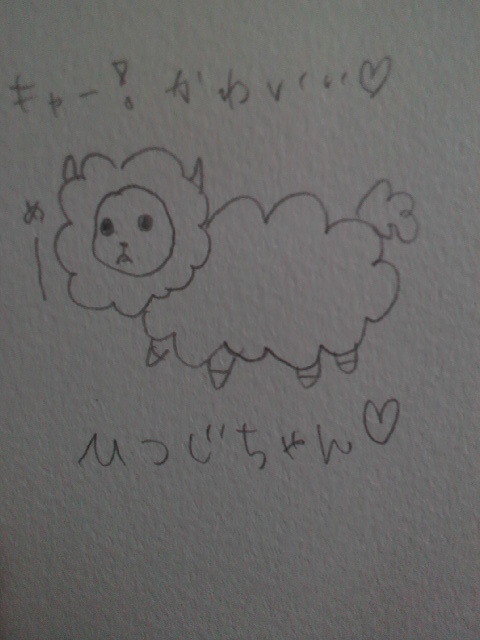 キャー!かわいい♡
めー
ひつじちゃん♡